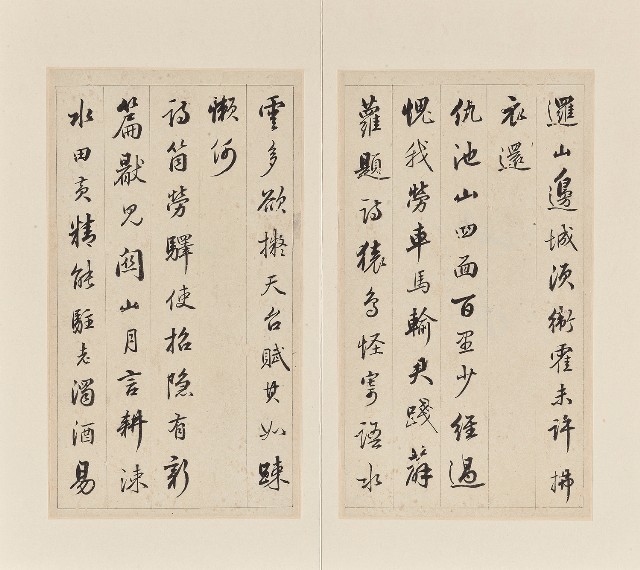 邏山邊城須衛霍未許拂
衣還
仇池山四面百里少經過
愧我勞車馬輸君踐薜
蘿題詩猿鳥怪寄語水
雲多欲擬天台賦其如踈
懶何
詩筒勞驛使招隐有新
篇嚴兄關山月言耕涑
水田黃精能駐老濁酒易